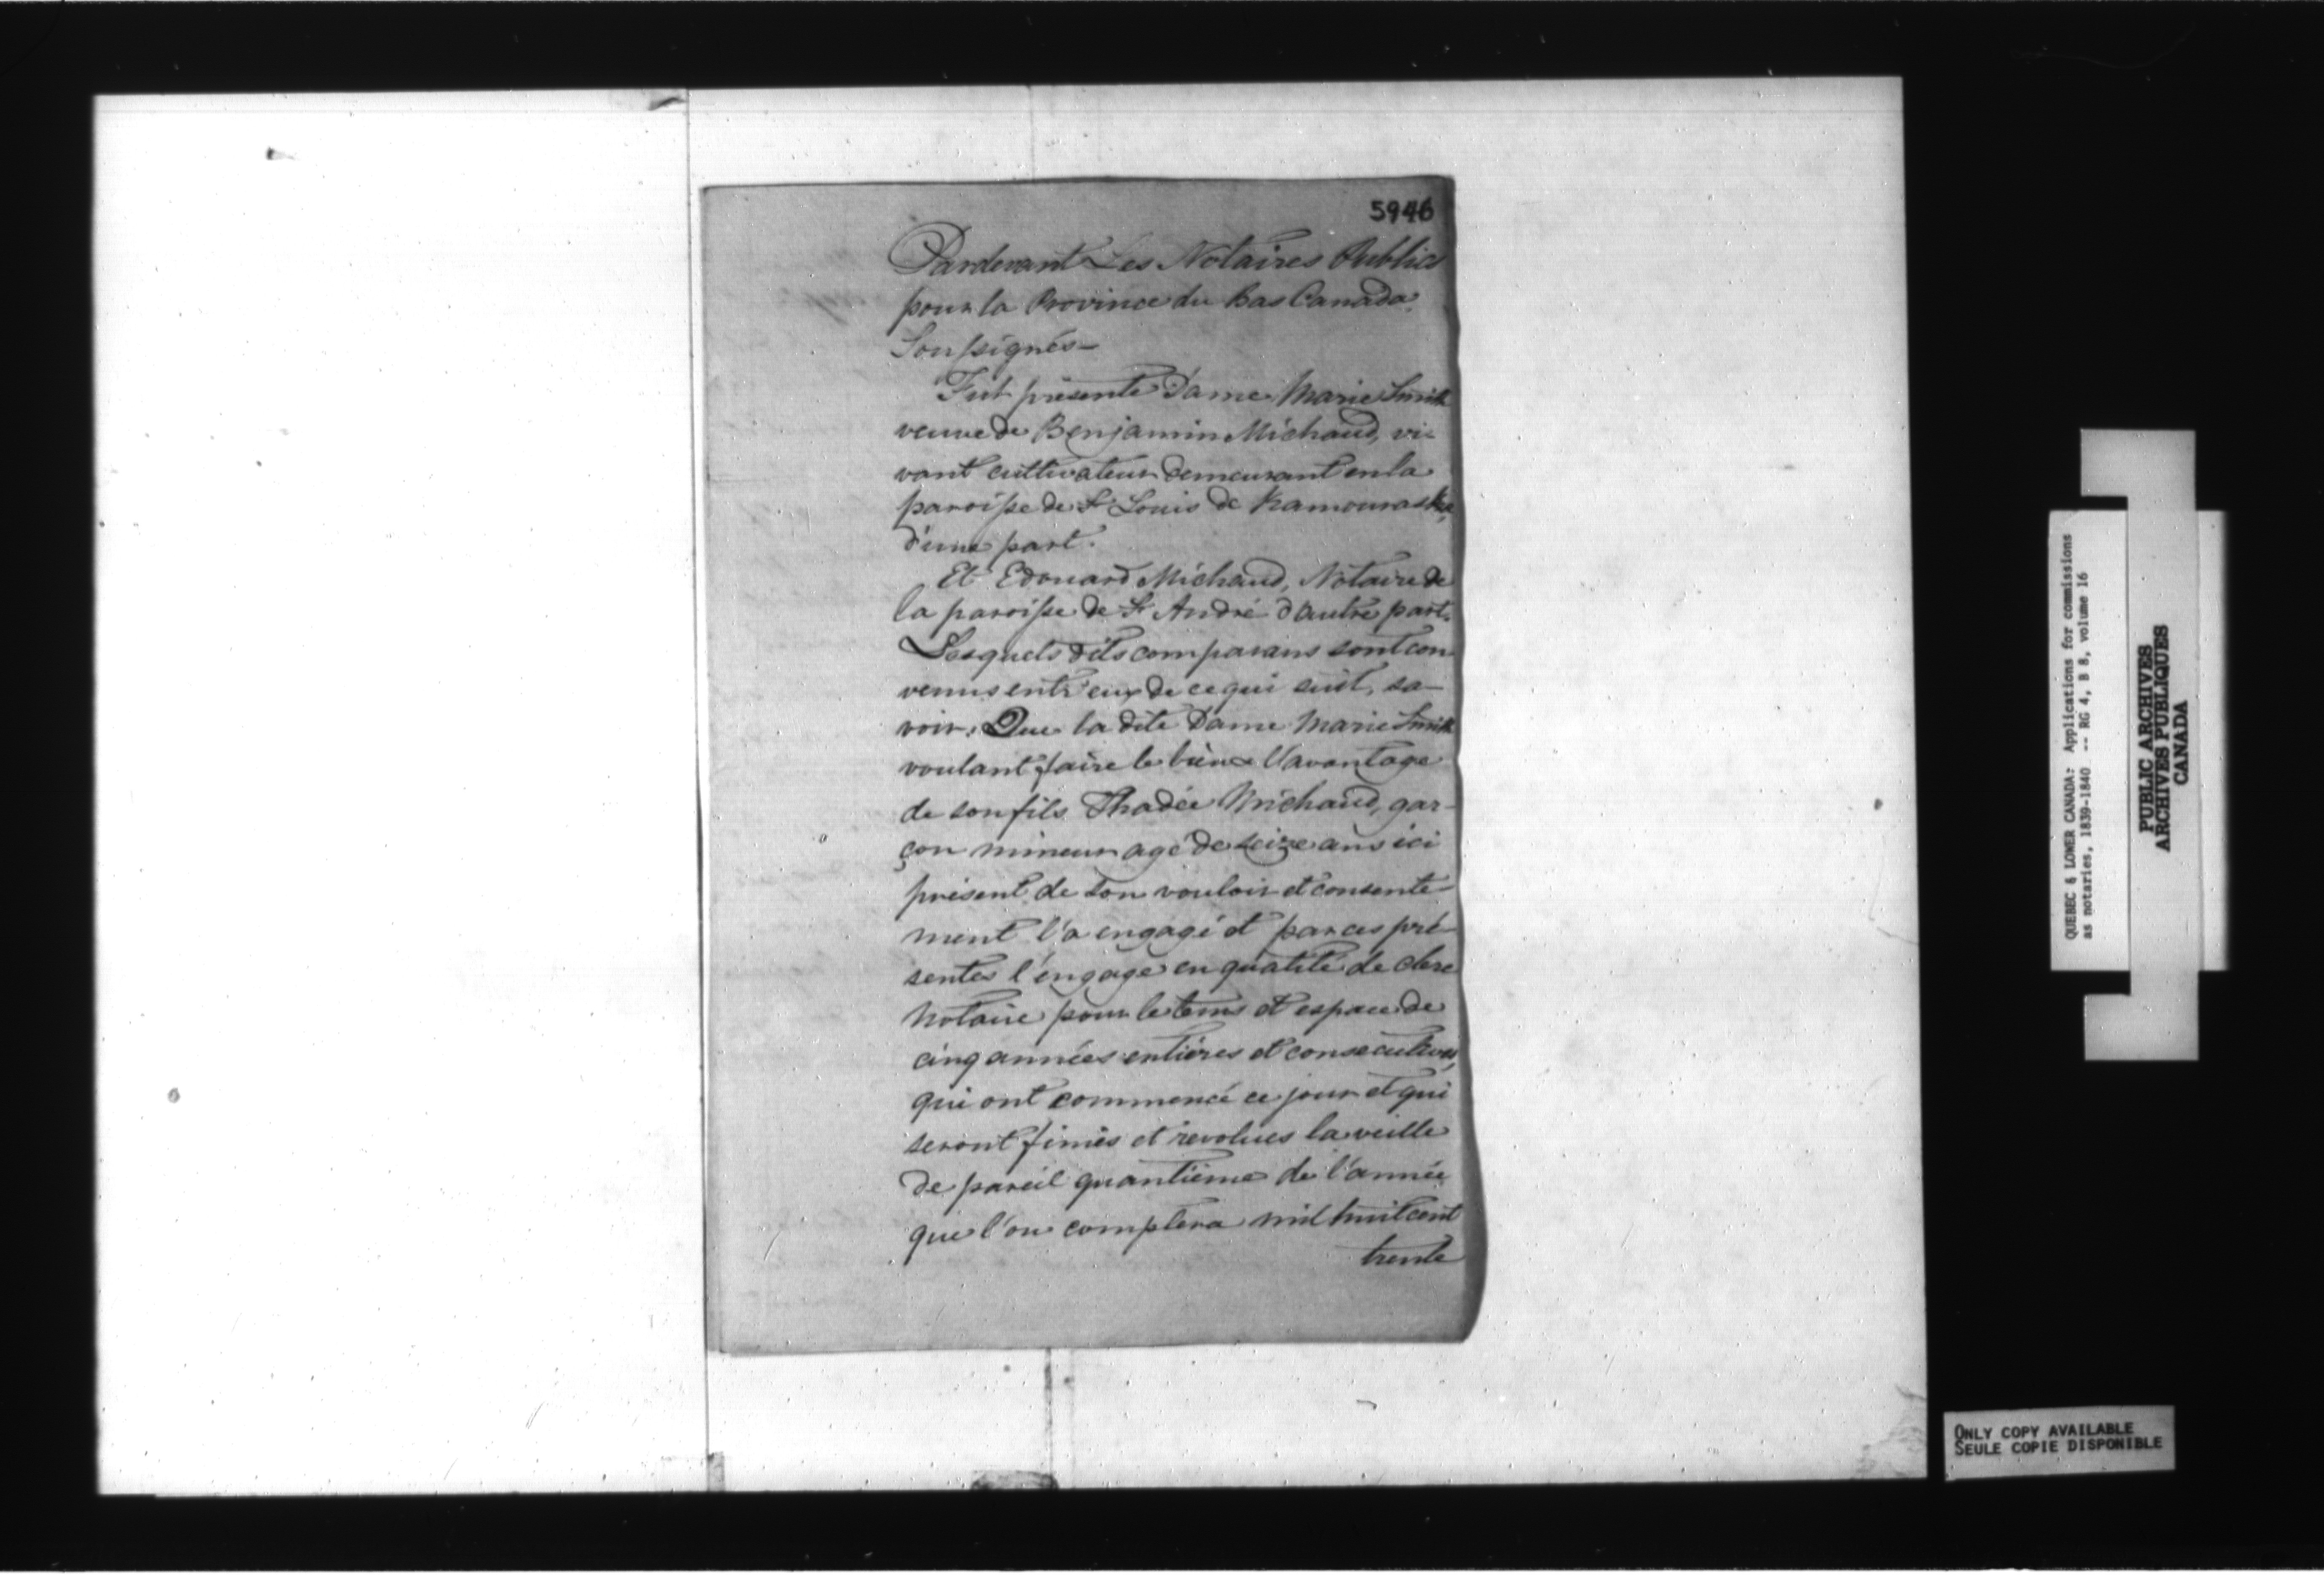 5946
Pardevant Les Notaires Publics
pour la Province du Bas Canada
Soussignés—
Fut présente Dame Marie Smith
veuve de Benjamin Michaud, vi-
vant cultivateur demeurant en la
paroisse de St Louis de Kamouraska,
d'une part.
Et Edouard Michaud, Notaire de
la paroisse de St André d'autre part.
Lesquels dits comparans sont con-
venus entr'eux de ce qui suit, sa-
voir, Que la dite Dame Marie Smith
voulant faire le bien & l'avantage
de son fils Thadée Michaud, gar-
çon mineur agé de seize ans ici
présent de son vouloir et consente-
ment l'a engagé et par ces pré-
sentes l'engage en qualité de clerc
Notaire pour le tems et espace de
cinq années entières et consecutives,
qui ont commencé ce jour et qui
seront finies et revolues la veille
de pareil quantième de l'année
que l'on comptera mil huit cent
trente
QUEBEC & LOWER CANADA: Applications for commissions
as notaries, 1839-1840 -- RG 4, B 8, volume 16
PUBLIC ARCHIVES
ARCHIVES PUBLIQUES
CANADA
ONLY COPY AVAILABLE
SEULE COPIE DISPONIBLE